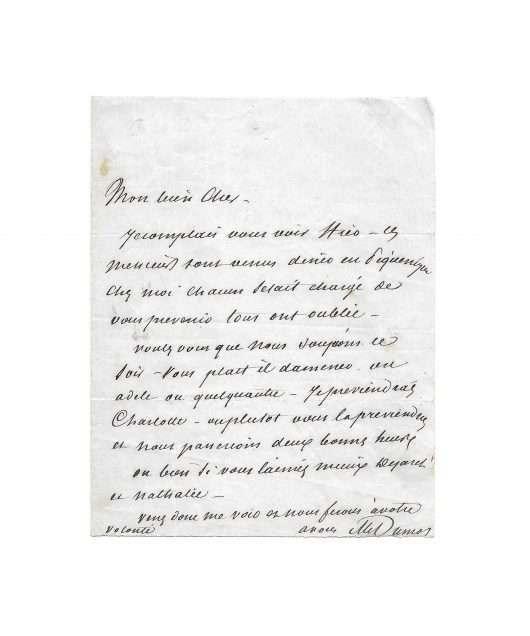 Mon bien Cher -
Je comptais vous voir Hier - ces
messieurs sont venus diner en Piquenique
chez moi chacun setait chargé de
vous prevenir tous ont oublié -
voulez vous que nous soupions ce
soir - Vous plait il damener
adele ou quelquautre - Je previendrai
Charlotte - ouplutot vous la previendrez
et nous passerons deux bonnes heures
ou bien si vous laimez mieux
et nathalie -
venez donc me voir et nous ferons à votre
volonté
à vous Dumas